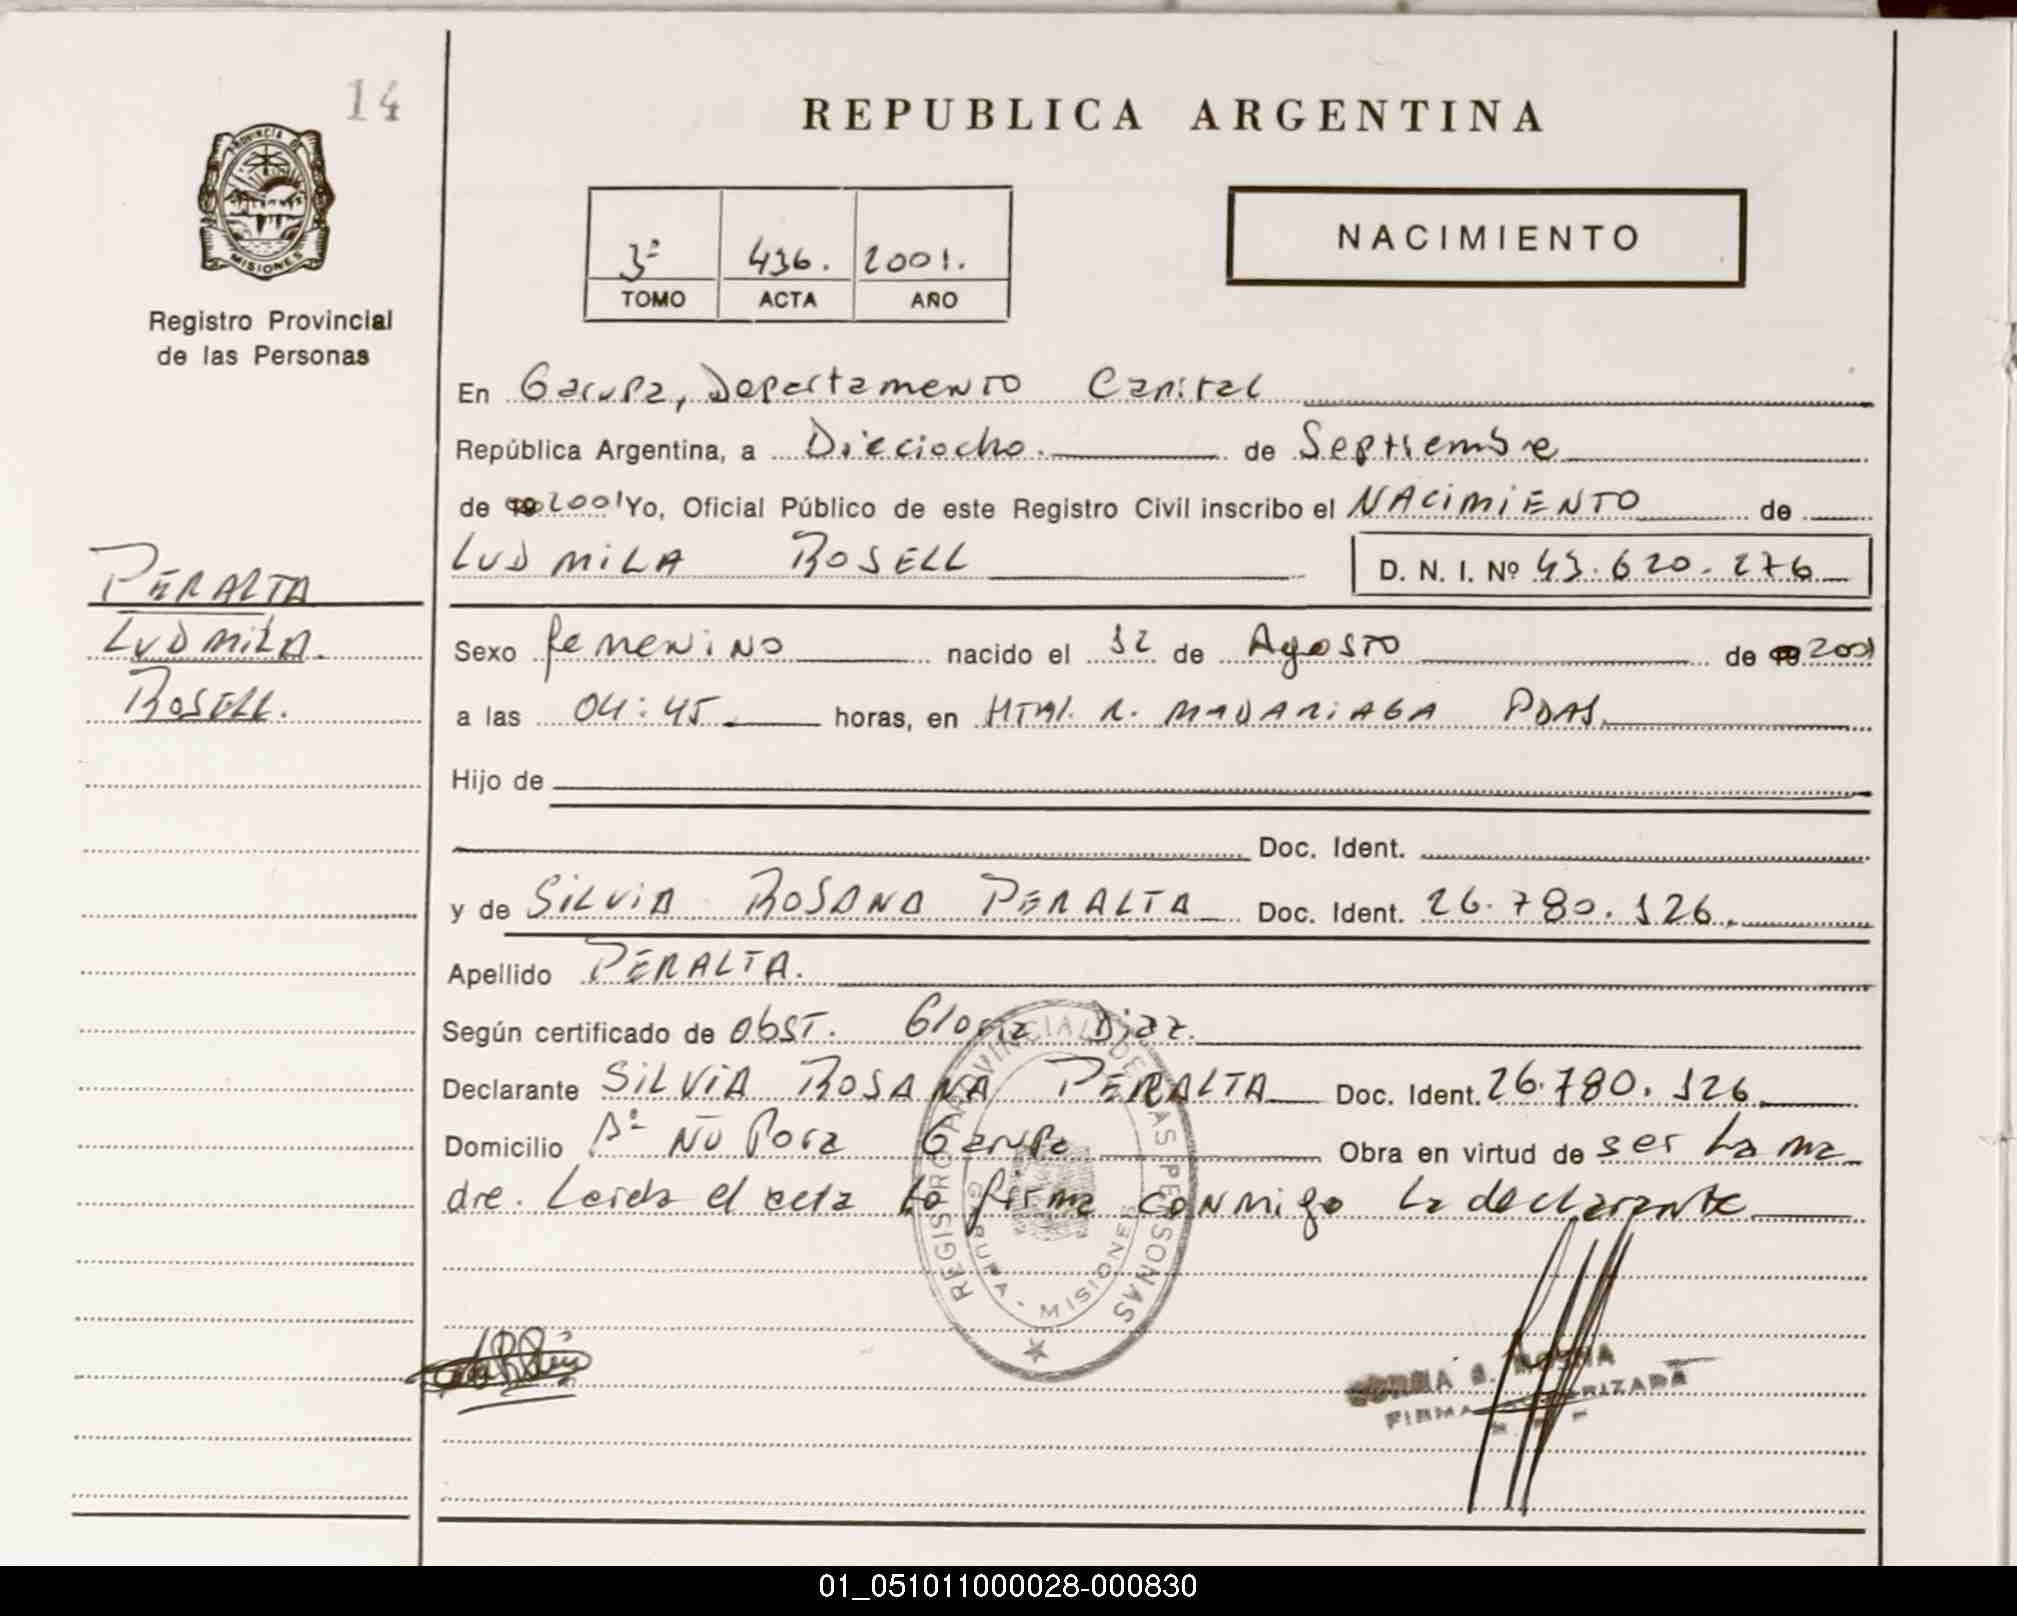 14
PROVINCIA DE
MISIONES
Registro Provincial
de las Personas
PERALTA
LUDMILA.
ROSELL.
REPUBLICA ARGENTINA
3º 436. 2001.
TOMO ACTA AÑO
NACIMIENTO
En Garupa, Departamento Capital
República Argentina, a Dieciocho. de Septiembre
de 19 2001 Yo, Oficial Público de este Registro Civil inscribo el NACIMIENTO de
LUDMILA ROSELL D. N. I. Nº 43.620.276
Sexo femenino nacido el 12 de Agosto de 19 2001
a las 04:45 horas, en HTAL. R. MADARIAGA PDAS.
Hijo de
Doc. Ident.
y de SILVIA ROSANA PERALTA Doc. Ident. 26.780.126.
Apellido PERALTA.
Según certificado de Obst. Gloria Diaz.
Declarante SILVIA ROSANA PERALTA Doc. Ident. 26.780.126
Domicilio Bº ÑU Pora Garupa Obra en virtud de ser La ma
dre. Leida el acta La firma conmigo La declarante
REGISTRO PROVINCIAL DE LAS PERSONAS
GARUPA - MISIONES
FIRMA AUTORIZADA
01_051011000028-000830